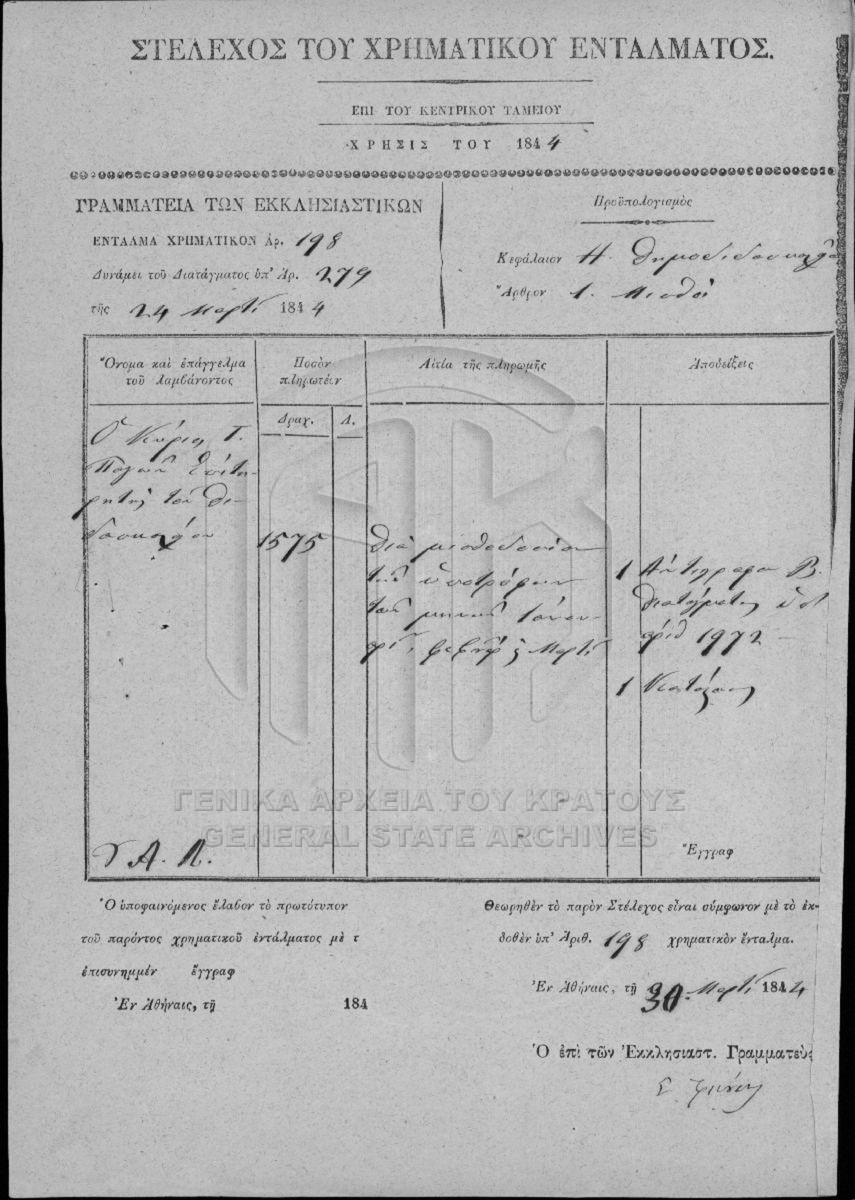 ΣΤΕΛΕΧΟΣ ΤΟΥ ΧΡΗΜΑΤΙΚΟΥ ΕΝΤΑΛΜΑΤΟΣ.
ΕΠΙ ΤΟΥ ΚΕΝΤΡΙΚΟΥ ΤΑΜΕΙΟΥ
ΧΡΗΣΙΣ ΤΟΥ 1844
ΓΡΑΜΜΑΤΕΙΑ ΤΩΝ ΕΚΚΛΗΣΙΑΣΤΙΚΩΝ
ΕΝΤΑΛΜΑ ΧΡΗΜΑΤΙΚΟΝ Ἀρ. 198
Δυνάμει τοῦ Διατάγματος ὑπ' Ἀρ. 279
τῆς 24 Μαρτί 1844
Προϋπολογισμὸς
Κεφάλαιον Η.
Ἄρθρον 1. Μισθοὶ
Ὄνομα καὶ ἐπάγγελμα
τοῦ λαμβάνοντος
Ποσὸν
πληρωτέιν
Αἰτία τῆς πληρωμῆς
Ἀποδείξεις
Δραχ. Λ.
Ὁ Κύριος
τοῦ Δι-
δασκαλείου
1575
Διὰ μισθοδοσίαν
τῶν ὑποτρόφων
τοῦ μηνὸς Ἰανου-
Μαρτί
1 Ἀντίγραφον Β.
Διατάγματος ὑπ
ἀριθ 1972
1 Κατάλογος
Α. Λ.
Ἔγγραφ
ΓΕΝΙΚΑ ΑΡΧΕΙΑ ΤΟΥ ΚΡΑΤΟΥΣ
GENERAL STATE ARCHIVES
Ὁ ὑποφαινόμενος ἔλαβον τὸ πρωτότυπον
τοῦ παρόντος χρηματικοῦ ἐντάλματος μὲ τ
ἐπισυνημμέν ἔγγραφ
Ἐν Ἀθήναις, τῇ 184
Θεωρηθὲν τὸ παρὸν Στέλεχος εἶναι σύμφωνον μὲ τὸ ἐκ-
δοθὲν ὑπ' Ἀριθ. 198 χρηματικὸν ἔνταλμα.
Ἐν Ἀθήναις, τῇ 30 Μαρτί 1844
Ὁ ἐπὶ τῶν Ἐκκλησιαστ. Γραμματεὺς